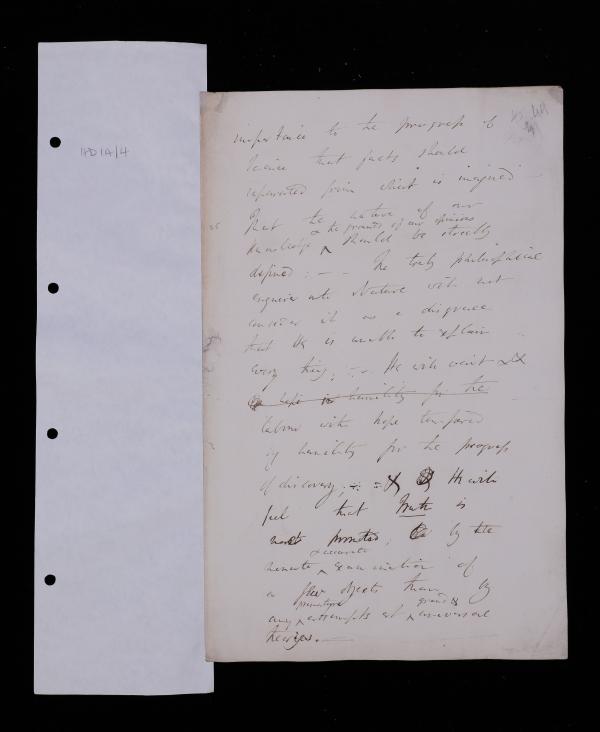 HD 1A/4
importance to the progress of
Science that facts should
seperated from what is imagined
that the nature of our
& the grounds of our opinions
knowledge ^ should be strictly
defined: - - The truly philosophical
enquirer into Nature will not
consider it as a disgrace
that He is unable to explain
every thing; -.- He will wait &
hope in humility for the
labour with hope tempered
by humility for the progress
of discovery; -:- He will
feel that truth is
more promoted, by the
& accurate
minute ^ examination of
a few objects than by
premature
any ^ attempts at ^
grand &
universal
theories. -